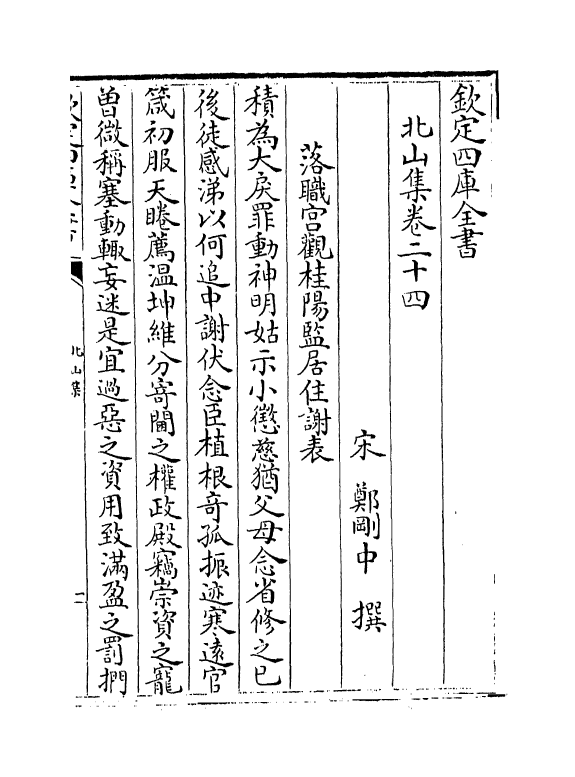 欽定四庫全書
北山集卷二十四
宋 鄭剛中 撰
落職宫觀桂陽監居住謝表
積為大戾罪動神明姑示小懲慈猶父母念省修之已
後徒感涕以何追中謝伏念臣植根竒孤振迹寒逺官
箴初服天睠薦温坤維分寄閫之權政殿竊崇資之寵
曽微稱塞動輙妄迷是宜過惡之資用致滿盈之罰捫
北山集